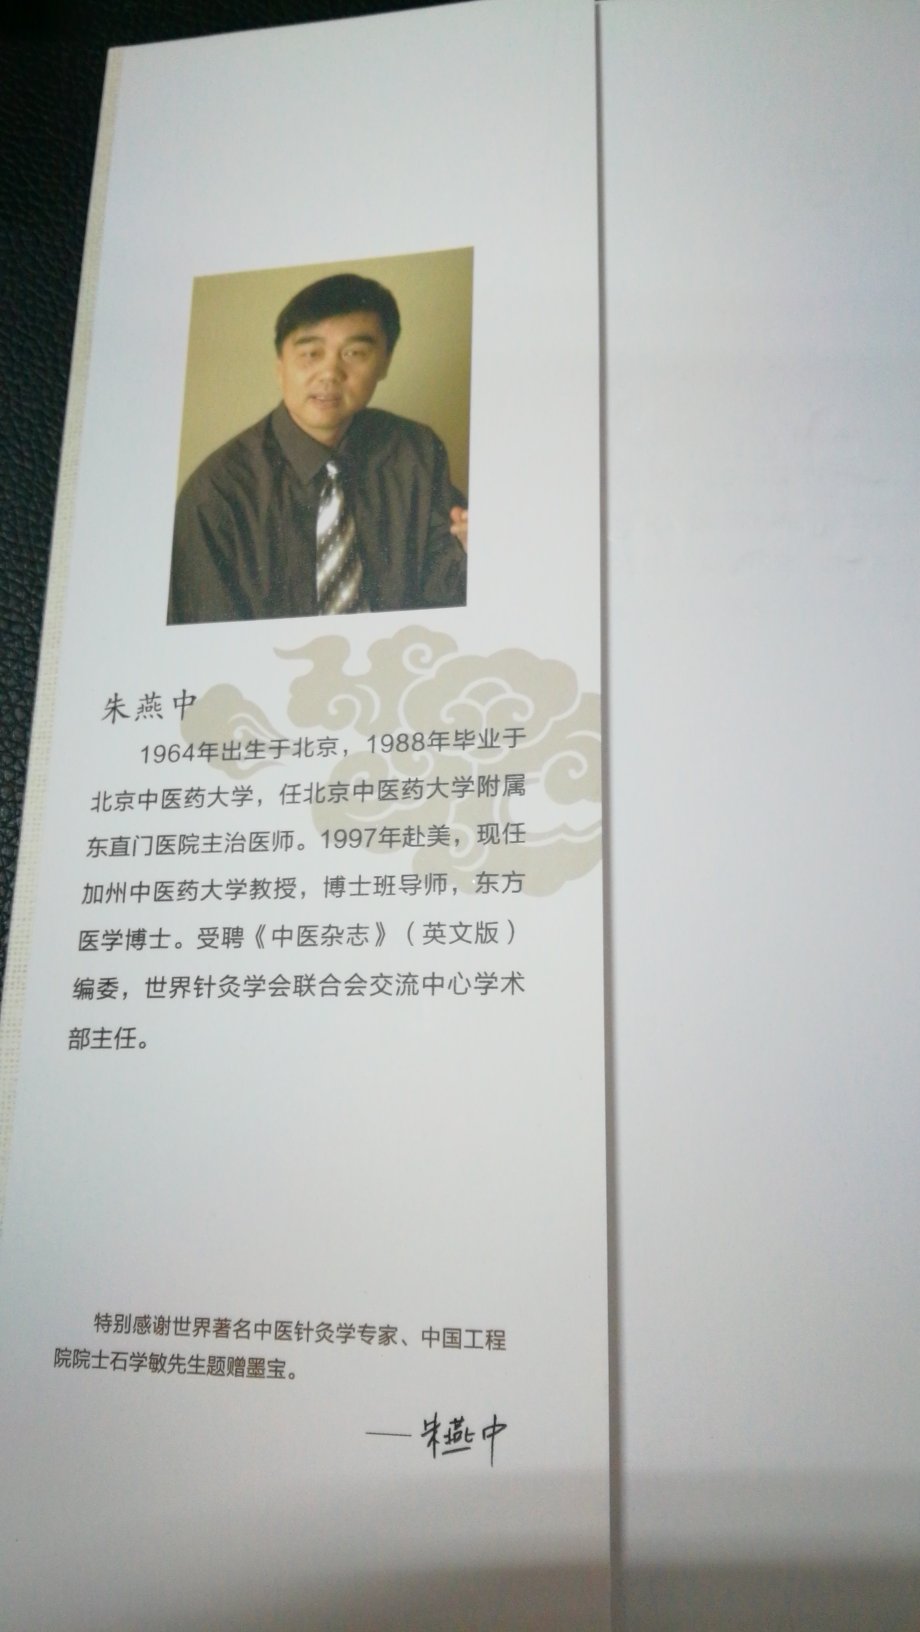 朱燕中
1964年出生于北京，1988年毕业于
北京中医药大学，任北京中医药大学附属
东直门医院主治医师。1997年赴美，现任
加州中医药大学教授，博士班导师，东方
医学博士。受聘《中医杂志》（英文版）
编委，世界针灸学会联合会交流中心学术
部主任。
特别感谢世界著名中医针灸学专家、中国工程
院院士石学敏先生题赠墨宝。
——朱燕中